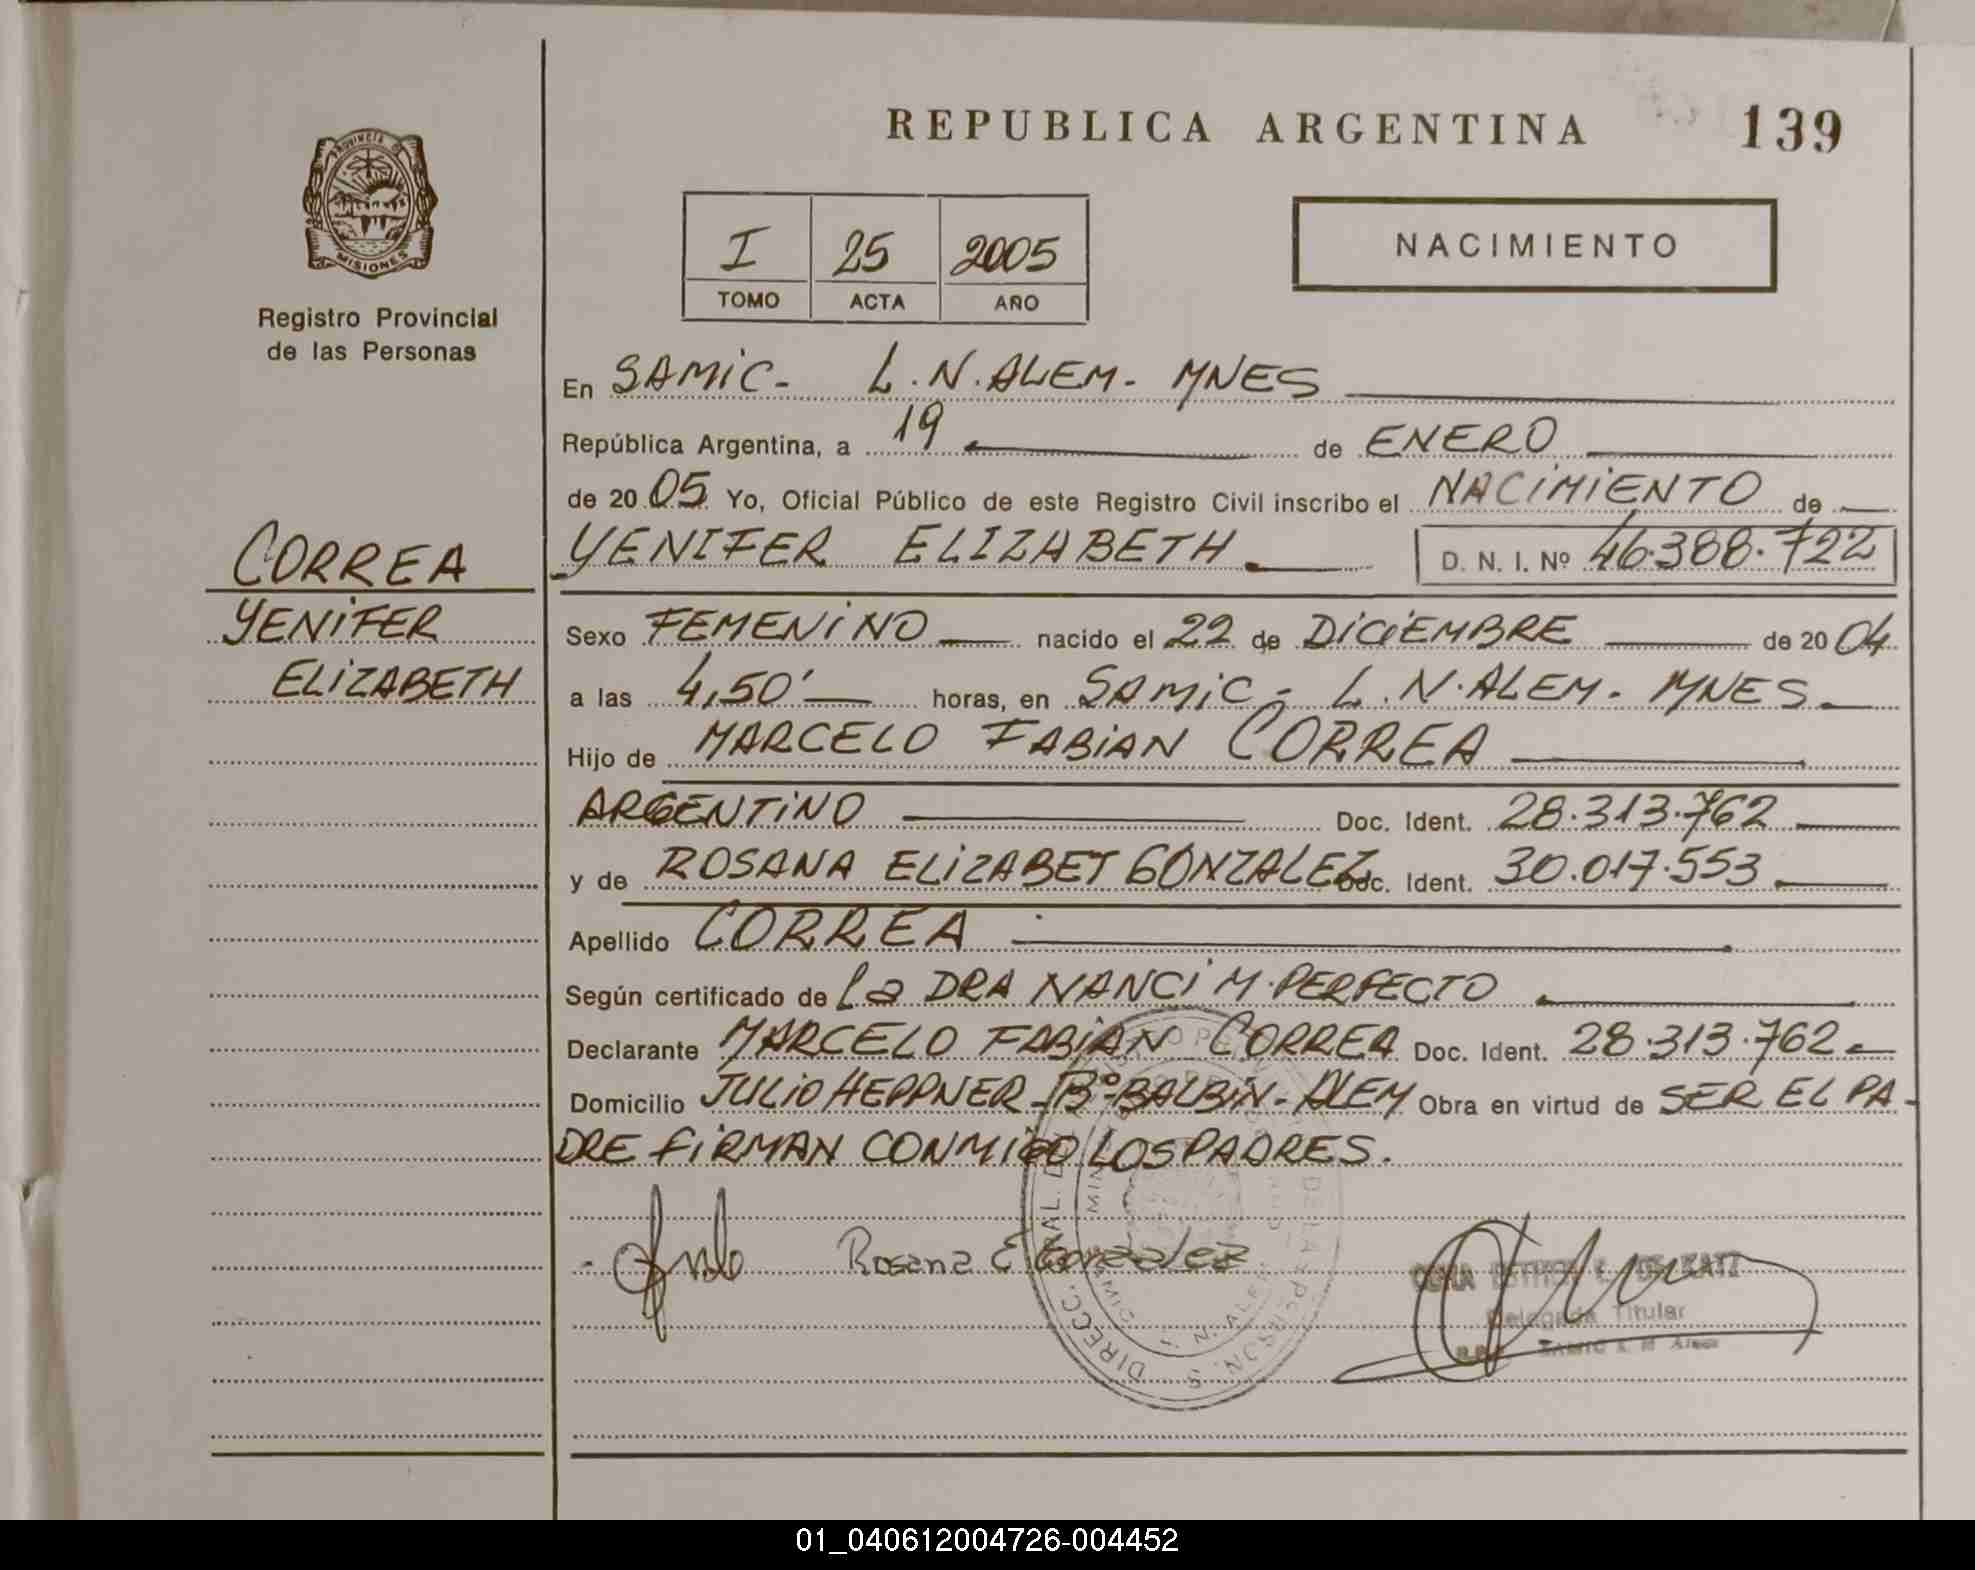 REPUBLICA ARGENTINA 139
PROVINCIA DE
MISIONES
Registro Provincial
de las Personas
I 25 2005
TOMO ACTA AÑO
NACIMIENTO
En SAMIC- L.N.ALEM- MNES
República Argentina, a 19 de ENERO
de 20 05 Yo, Oficial Público de este Registro Civil inscribo el NACIMIENTO de
YENIFER ELIZABETH D. N. I. Nº 46.388.722
CORREA
YENIFER
ELIZABETH
Sexo FEMENINO nacido el 22 de DICIEMBRE de 20 04
a las 4,50' horas, en SAMIC- L.N.ALEM- MNES
Hijo de MARCELO FABIAN CORREA
ARGENTINO Doc. Ident. 28.313.762
y de ROSANA ELIZABET GONZALEZ Doc. Ident. 30.017.553
Apellido CORREA
Según certificado de La DRA NANCI M. PERFECTO
Declarante MARCELO FABIAN CORREA Doc. Ident. 28.313.762
Domicilio JULIO HEPPNER-Bº-BALBIN-ALEM Obra en virtud de SER EL PA-
DRE FIRMAN CONMIGO LOS PADRES.
Rosana E Gonzalez
DIRECC. DE LAS PERSON.
L. N. ALEM
ESTHER DE KATZ
Delegada Titular
SAMIC L. N. Alem
01_040612004726-004452